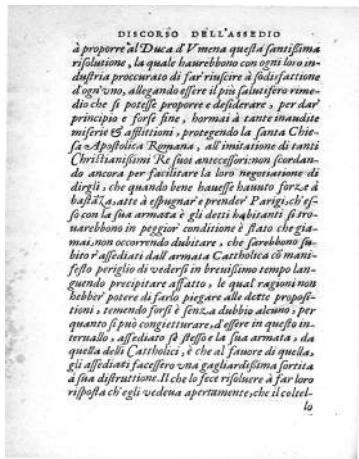 DISCORSO DELL'ASSEDIO
à proporre al Duca d'Vmena questa santißima
risolutione, la quale haurebbono con ogni loro in-
dustria proccurato di far riuscire à sodisfattione
d'ogn'vno, allegando essere il più salutifero rime-
dio che si potesse proporre e desiderare, per dar'
principio e forse fine, hormai à tante inaudite
miserie & afflittioni, protegendo la santa Chie-
sa Apostolica Romana, all'imitatione di tanti
Christianißimi Re suoi antecessori: non scordan-
do ancora per facilitare la loro negotiatione di
dirgli, che quando bene hauesse hauuto forze à
bastāza, atte à espugnar'e prender' Parigi, ch'es-
so con la sua armata e gli detti habitanti si tro-
uarebbono in peggior' conditione è stato che gia-
mai, non occorrendo dubitare, che sarebbono su-
bito r'assediati dall'armata Cattholica cō mani-
festo periglio di vedersi in breuißimo tempo lan-
guendo precipitare affatto, le qual ragioni non
hebber' potere di farlo piegare alle dette proposi-
tioni, temendo forsi è senza dubbio alcuno, per
quanto si può congietturare, d'essere in questo in-
teruallo, assediato sè stesso e la sua armata, da
quella delli Cattholici, è che al fauore di quella,
gli assediati facessero vna gagliardißima sortita
à sua distruttione. Il che lo fece risoluere à far loro
risposta ch'egli vedeua apertamente, che il coltel-
lo